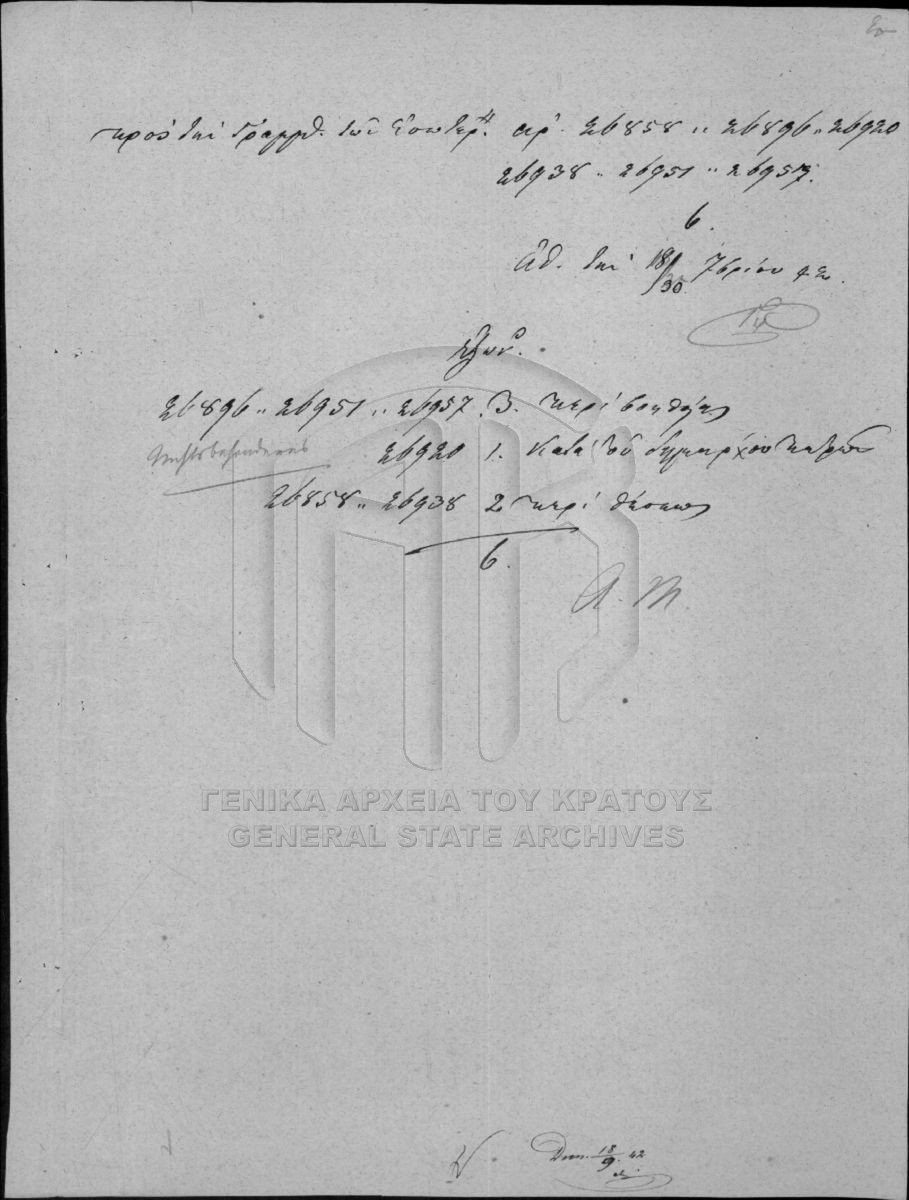 πρὸς τὴν Γραμμ. τῶν Ἐσωτερ. ἀρ. 26858 " 26896 " 26920
26938 " 26951 " 26957.
6.
Ἀθ. τὴν 18/30 7βρίου 42
26896 " 26951 " 26957. 3. περὶ βοηθείας
Nichts besonderes 26920 1. κατὰ τοῦ δημάρχου
26858 " 26938 2 περὶ θέσεως
6.
Α. Μ.
ΓΕΝΙΚΑ ΑΡΧΕΙΑ ΤΟΥ ΚΡΑΤΟΥΣ
GENERAL STATE ARCHIVES
18/9 42